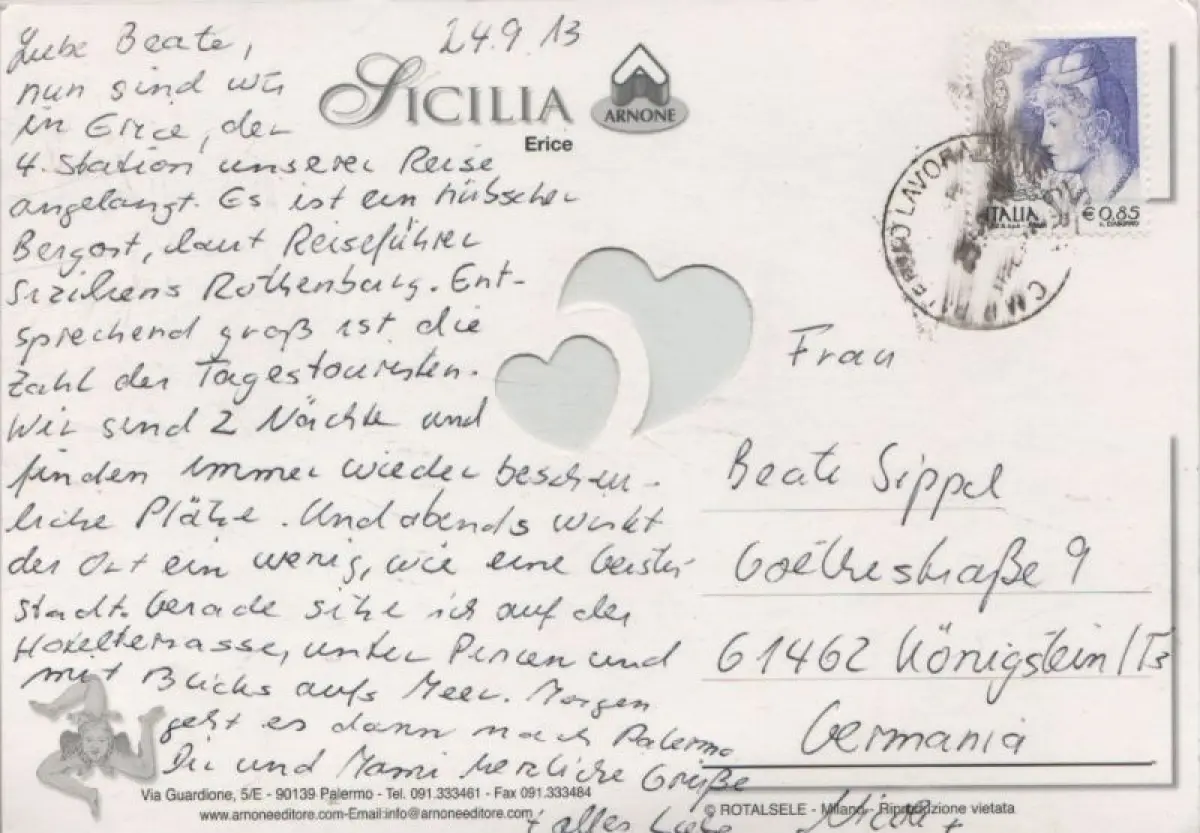 24.9.13
Liebe Beate,
nun sind wir
in Erice, der
4. Station unserer Reise
angelangt. Es ist ein hübscher
Bergort, laut Reiseführer
Siziliens Rothenburg. Ent-
sprechend groß ist die
Zahl der Tagestouristen.
Wir sind 2 Nächte und
finden immer wieder beschau-
liche Plätze. Und abends wirkt
der Ort ein wenig, wie eine Geister
stadt. Gerade sitze ich auf der
Hotelterrasse, unter Pinien und
mit Blicks aufs Meer. Morgen
geht es dann nach Palermo
Dir und Mami herzliche Grüße
+ alles Liebe
SICILIA
Erice
ARNONE
ITALIA € 0,85
LAVORO
C.M.P.
Frau
Beate Sippel
Goethestraße 9
61462 Königstein/Ts
Germania
Via Guardione, 5/E - 90139 Palermo - Tel. 091.333461 - Fax 091.333484
www.arnoneeditore.com-Email:info@arnoneeditore.com
© ROTALSELE - Milano - Riproduzione vietata